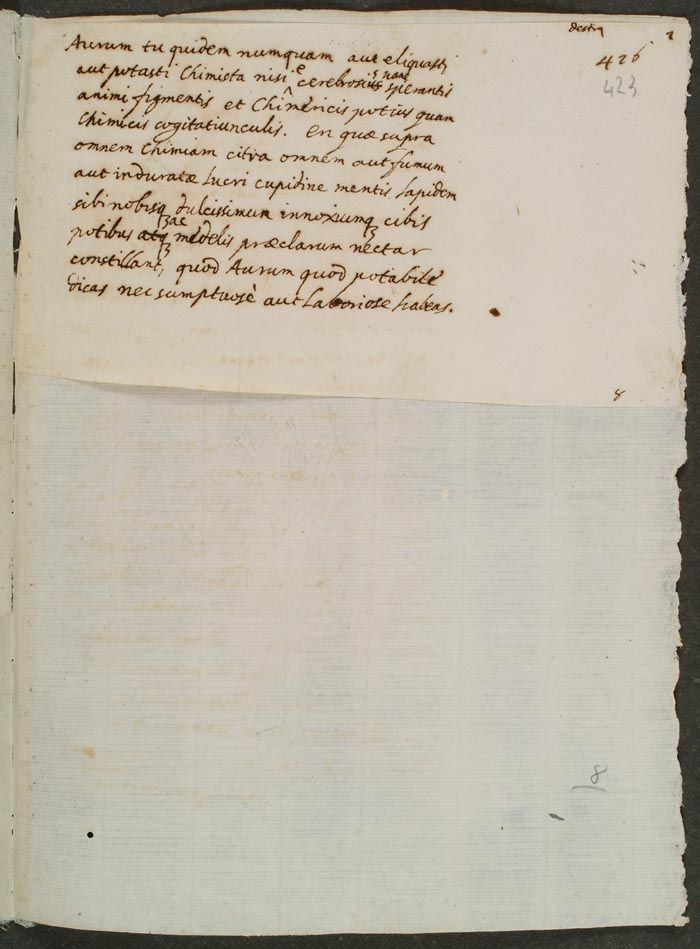 destra 2
426
423
Aurum tu quidem numquam aut eliquasti
aut potasti Chimista nisi è cerebrosi vane sperantis
animi figmentis et Chimericis potius quam
Chimicis cogitatiunculis. En quæ supra
omnem Chimiam citra omnem aut fumum
aut induratæ lucri cupidine mentis lapidem
sibi nobisq dulcissimum innoxiumq cibis
potibus ac medelis præclarum nectar
constillant, quod Aurum quod potabile
dicas nec sumptuosè aut laboriose habeas.
8
8